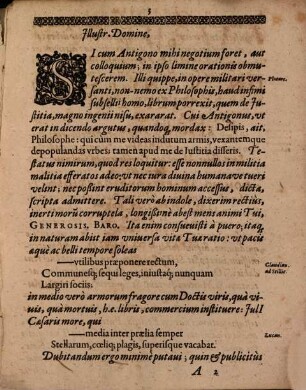 3
Illustr. Domine,
SI cum Antigono mihi negotium foret, aut
colloquium; in ipso limine orationis obmu-
tescerem. Illi quippe, in opere militari ver-
santi, non-nemo ex Philosophis, haud infimi
subselli homo, librum porrexit, quem de Ju-
stitia, magno ingenii nisu, exararat. Cui Antigonus, vt
erat in dicendo argutus, quandoq, mordax: Desipis, ait,
Philosophe: qui cum me videas indutum armis, vexantemque
ac depopulandis vrbeis tamen apud me de Justitia differis. Te-
status nimirum, quod res loquitur: esse nonnullos in militia
malitia efferatos adeo, vt nec iura divina humanave tueri
velint: nec possint eruditorum hominum accessus, dicta,
scripta admittere. Tali verò ab indole, dixerim rectius,
inerti morū corruptela, longissimè abest mens animi Tui,
GENEROSIS. BARO. Ita enim consuevisti à puero; itaq,
in naturam abiit iam vniversa vita Tua ratio: vt pacis
aquè ac belli tempore soleas
—vtilibus præponere rectum,
Communesq; sequi leges, iniustaq; nunquam
Largiri sociis:
in medio verò armorum fragore cum Doctis viris, quà vi-
vis, quà mortuis, h.e. libris, commercium instituere: Julī
Cæsaris more, qui
—media inter prælia semper
Stellarum, cœliq; plagis, superisque vacabat.
Dubitandum ergo minimè putavi; quin & publicitùs
Plutarc.
Claudian.
ad Stilic.
Lucan.
A 2